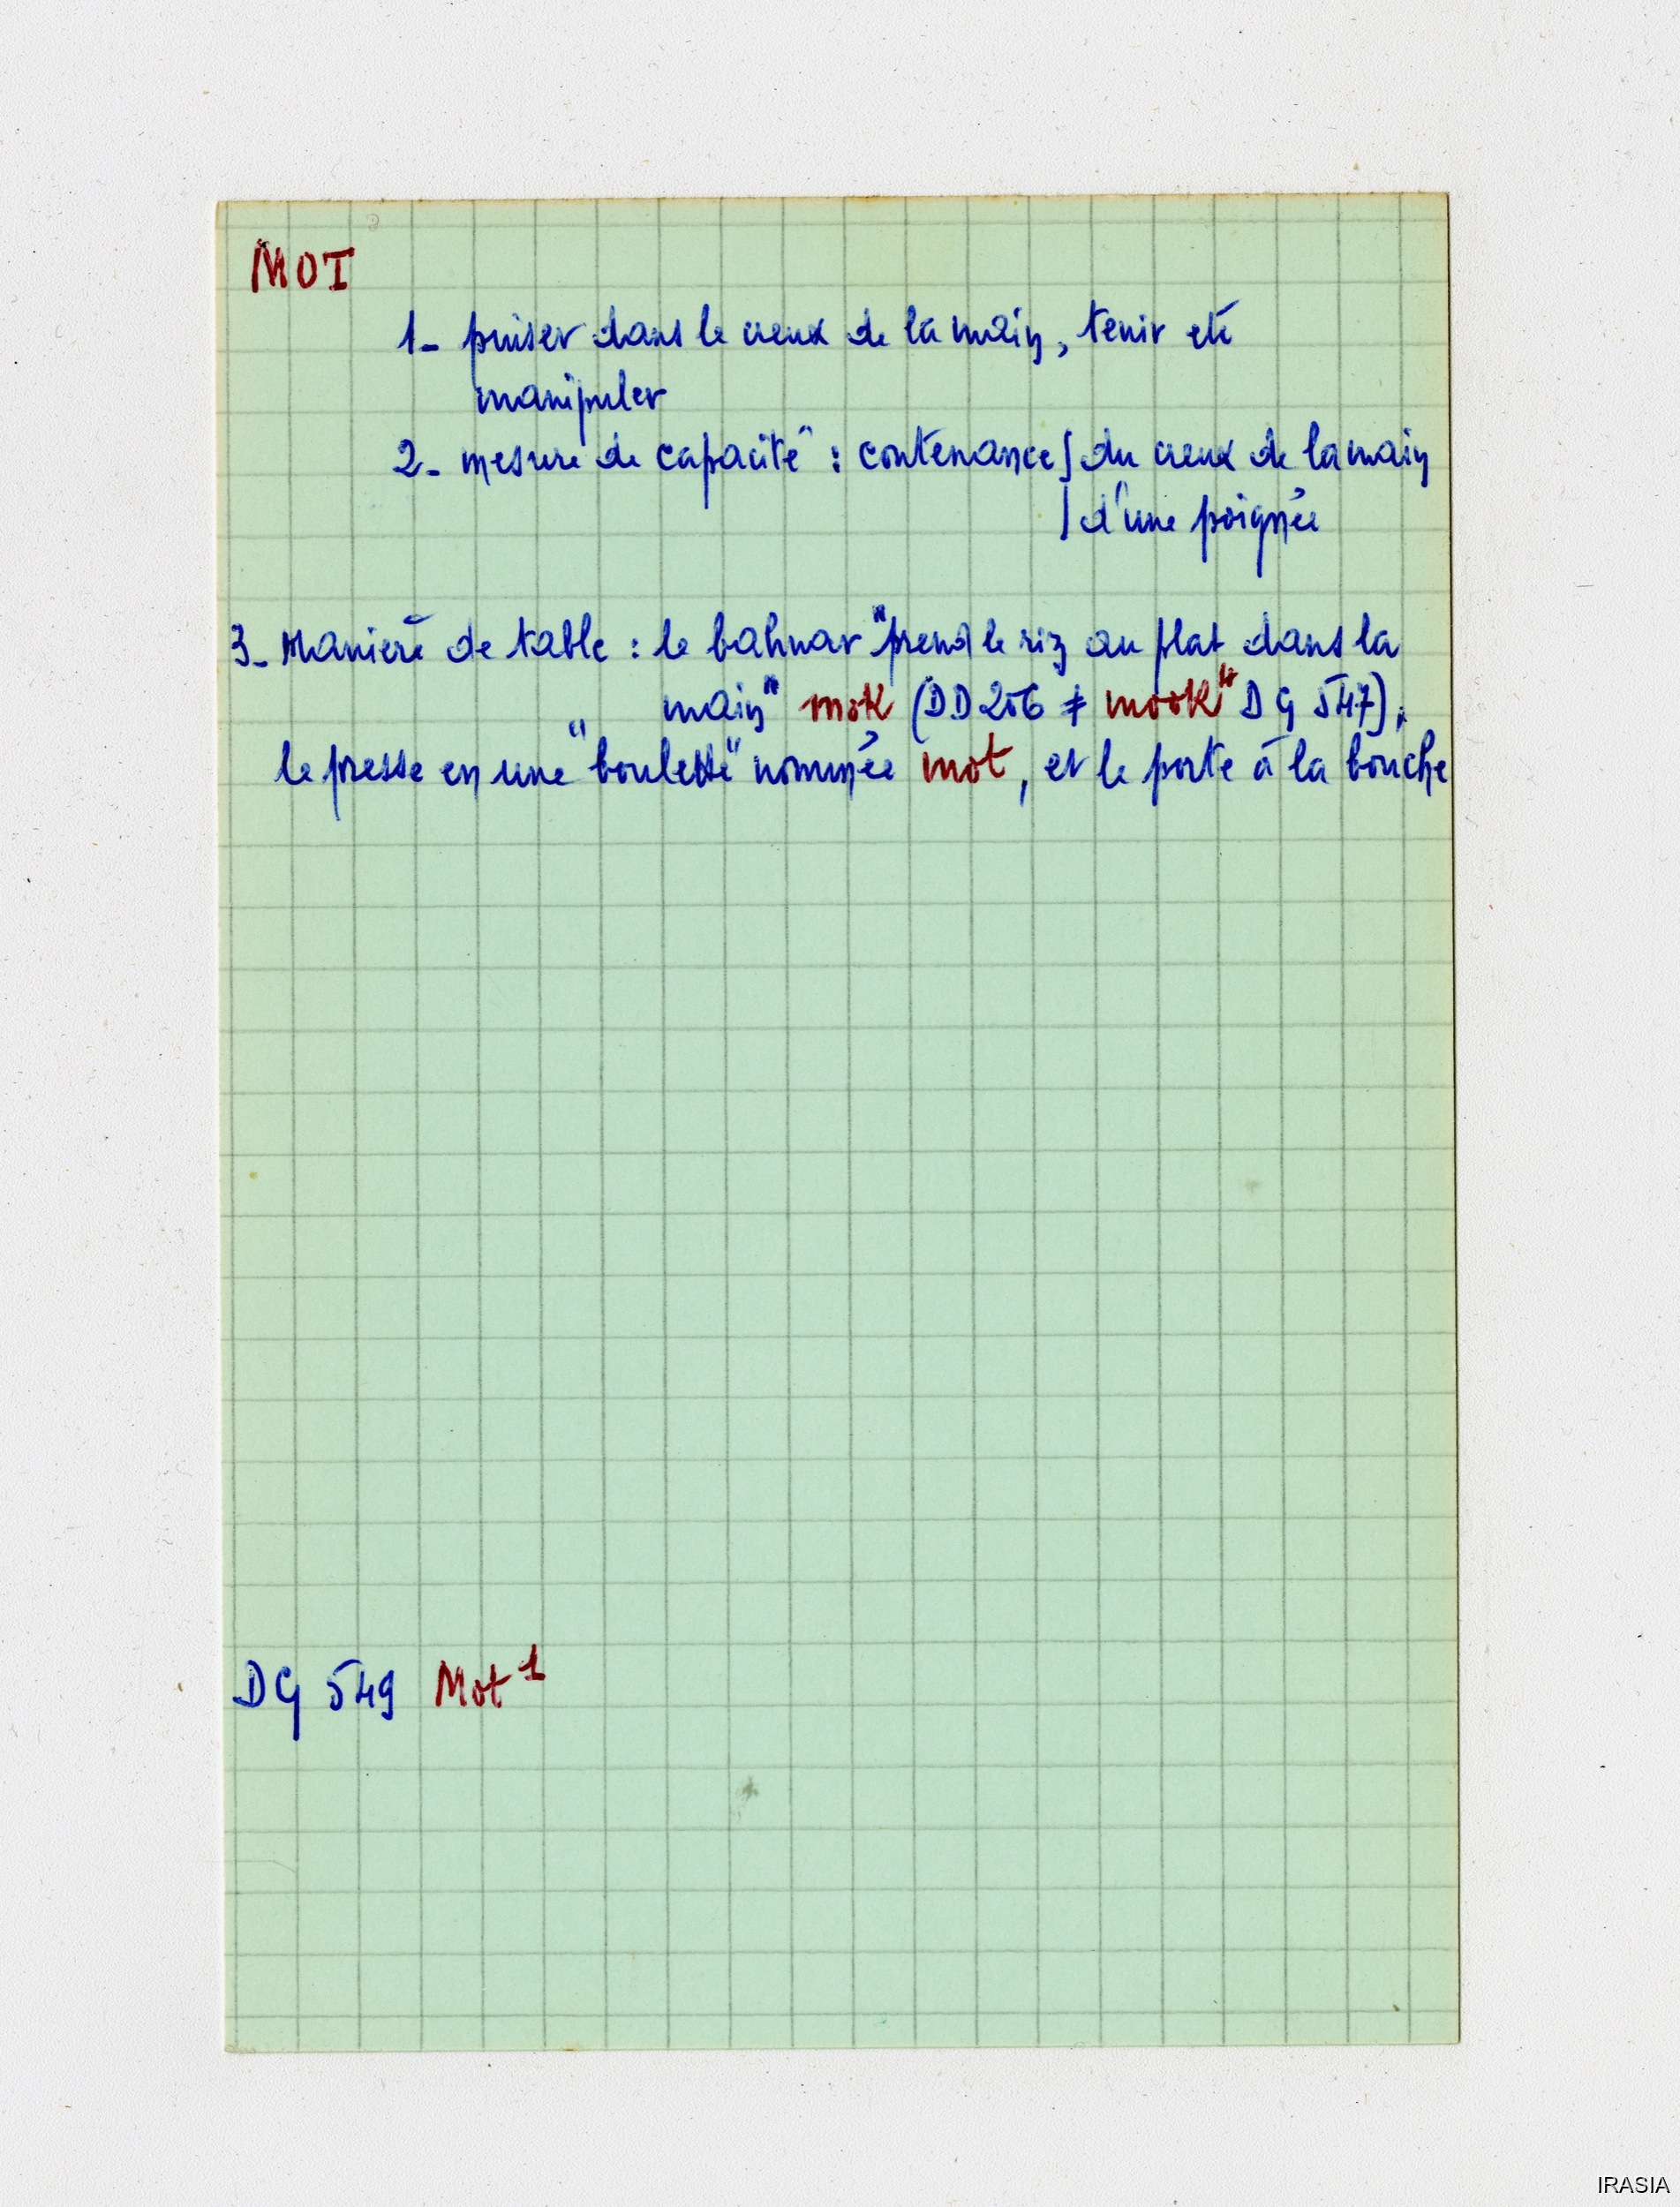 MOT
1- puiser dans le creux de la main, tenir et
manipuler
2- mesure de capacité : contenance { du creux de la main
{ d'une poignée
3- Manière de table : le bahnar "prend le riz au plat dans la
main" mok (DD 206 ≠ mook" DG 547),
le presse en une "boulette" nommée mot, et le porte à la bouche
DG 549 Mot¹
IRASIA